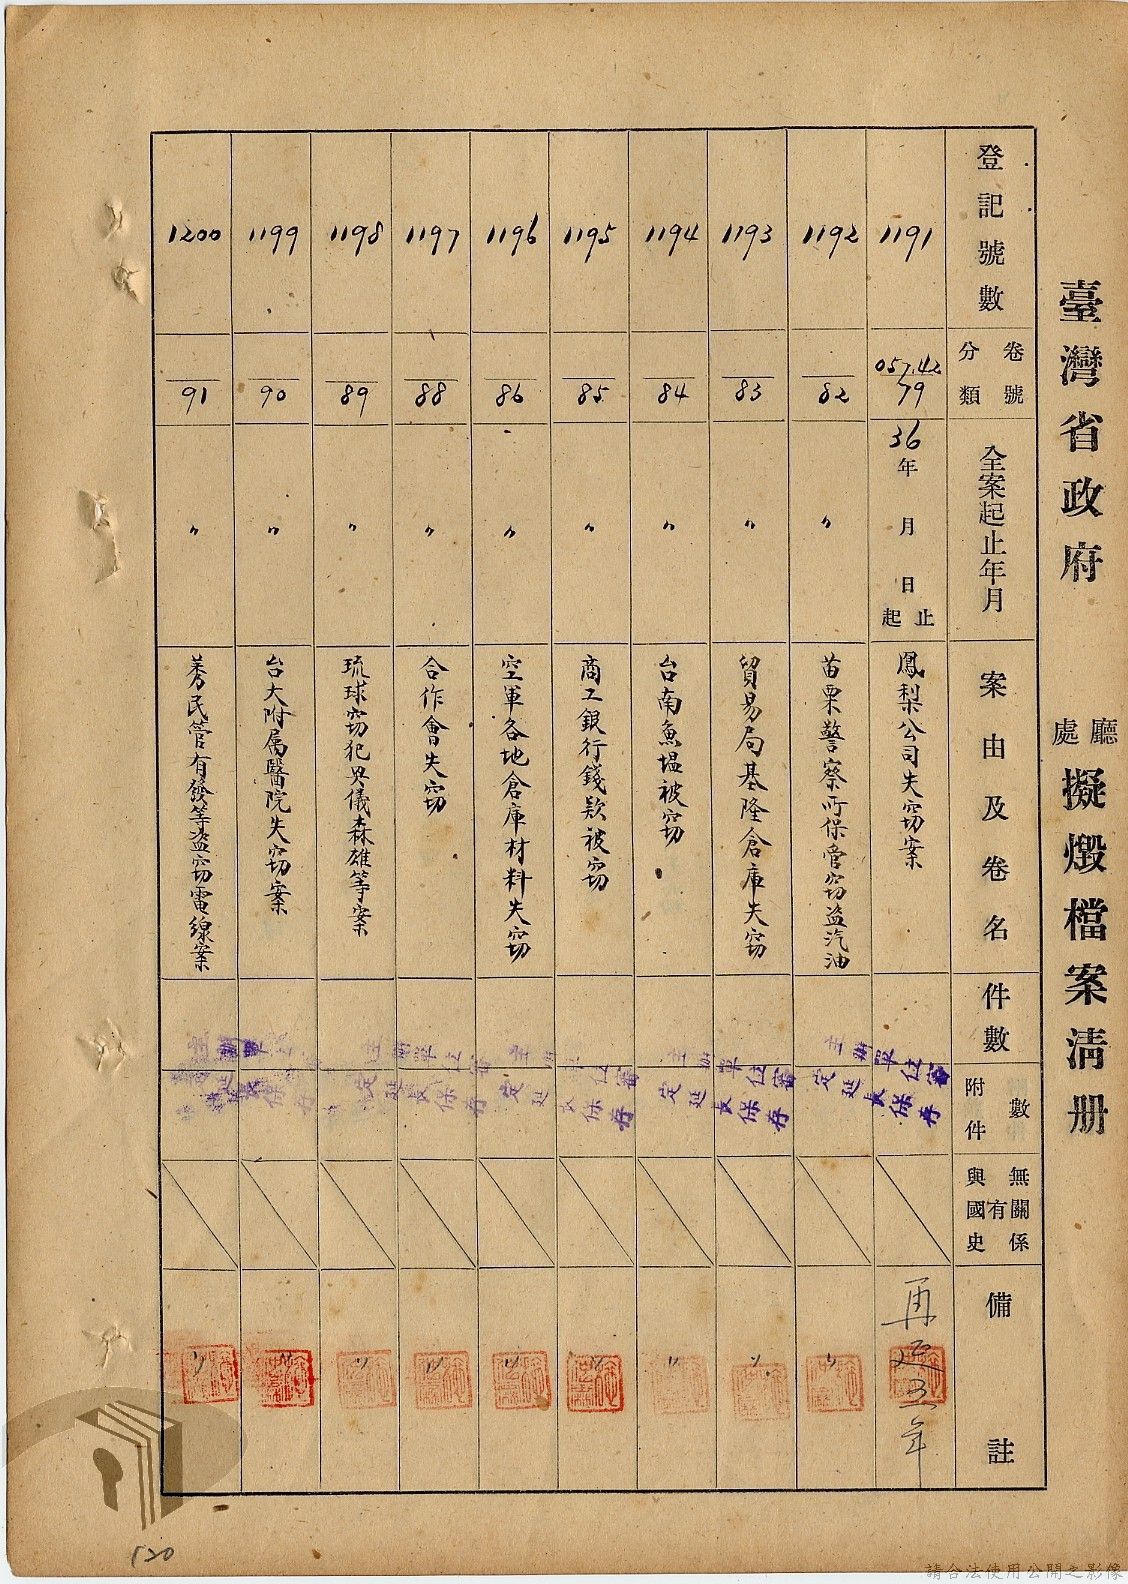 臺灣省政府 廳處 擬燬檔案清册
登記號數
卷號
分類
全案起止年月
案由及卷名
件數
附件數
與國史有無關係
備註
1191
057.42
79
36年 月 日 起止
鳳梨公司失窃案
再延五年
1192
82
〃
苗栗警察所保管窃盜汽油
〃
1193
83
〃
貿易局基隆倉庫失窃
〃
1194
84
〃
台南魚塭被窃
〃
1195
85
〃
商工銀行錢款被窃
〃
1196
86
〃
空軍各地倉庫材料失窃
〃
1197
88
〃
合作會失窃
〃
1198
89
〃
琉球窃犯與儀森雄等案
〃
1199
90
〃
台大附属醫院失窃案
〃
1200
91
〃
莠民管有發等盗窃電線案
〃
主辦單位審
定延長保存
主辦單位審
定延長保存
主辦單位審
定延長保存
主辦單位審
定延長保存
120
請合法使用公開之影像